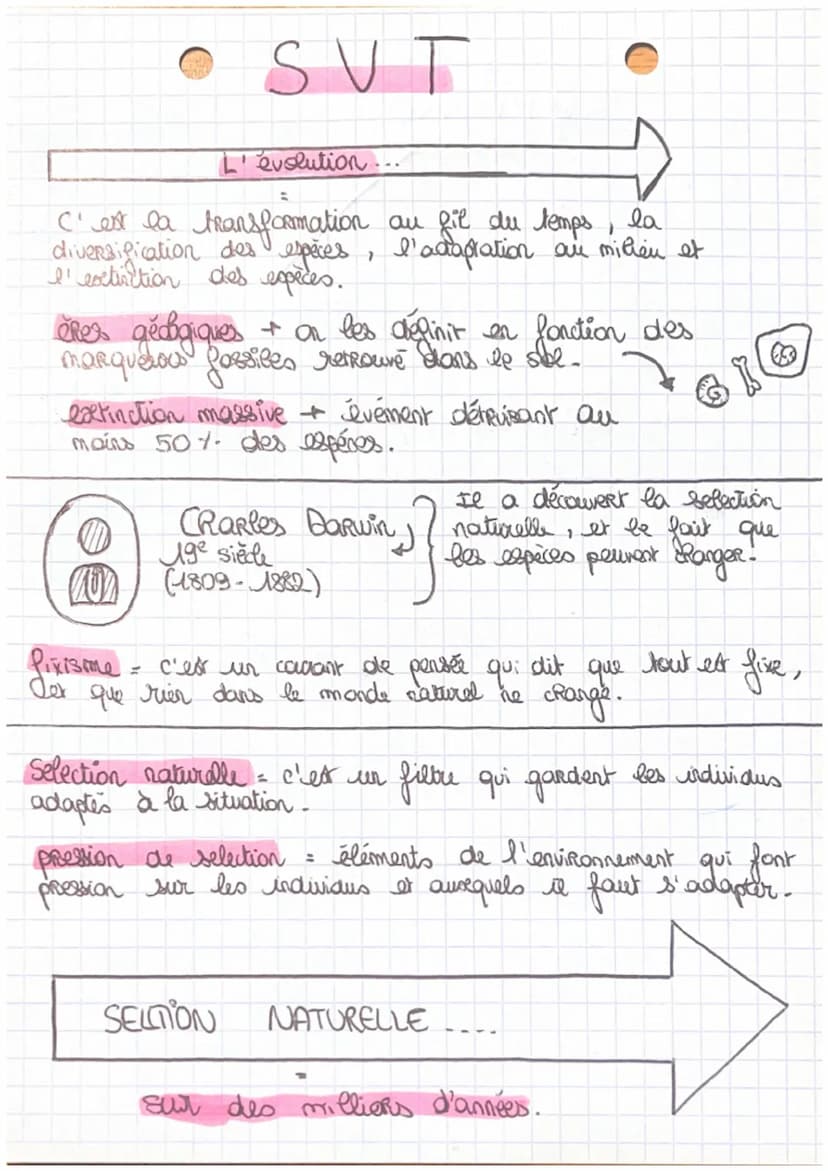 SVT
L'évolution...
=
C'est la transformation au fil du temps, la
diversification des espèces, l'adaptation au milieu et
l'extinction des espèces.
ères géologiques → on les définit en fonction des
marqueurs fossiles retrouvé dans le sol.
extinction massive → évément détruisant au
moins 50% des espèces.
Charles Darwin,
19e siècle
(1809-1882)
Il a découvert la selection
naturelle, et le fait que
les espèces peuvent changer.
fixisme = c'est un courant de pensée qui dit que tout est fixe,
et que rien dans le monde naturel ne change.
Sélection naturelle = c'est un filtre qui gardent les individus
adaptés à la situation.
pression de selection = éléments de l'environnement qui font
pression sur les individus et auxquels il faut s'adapter.
SELCTION NATURELLE ....
=
sur des milliers d'années.